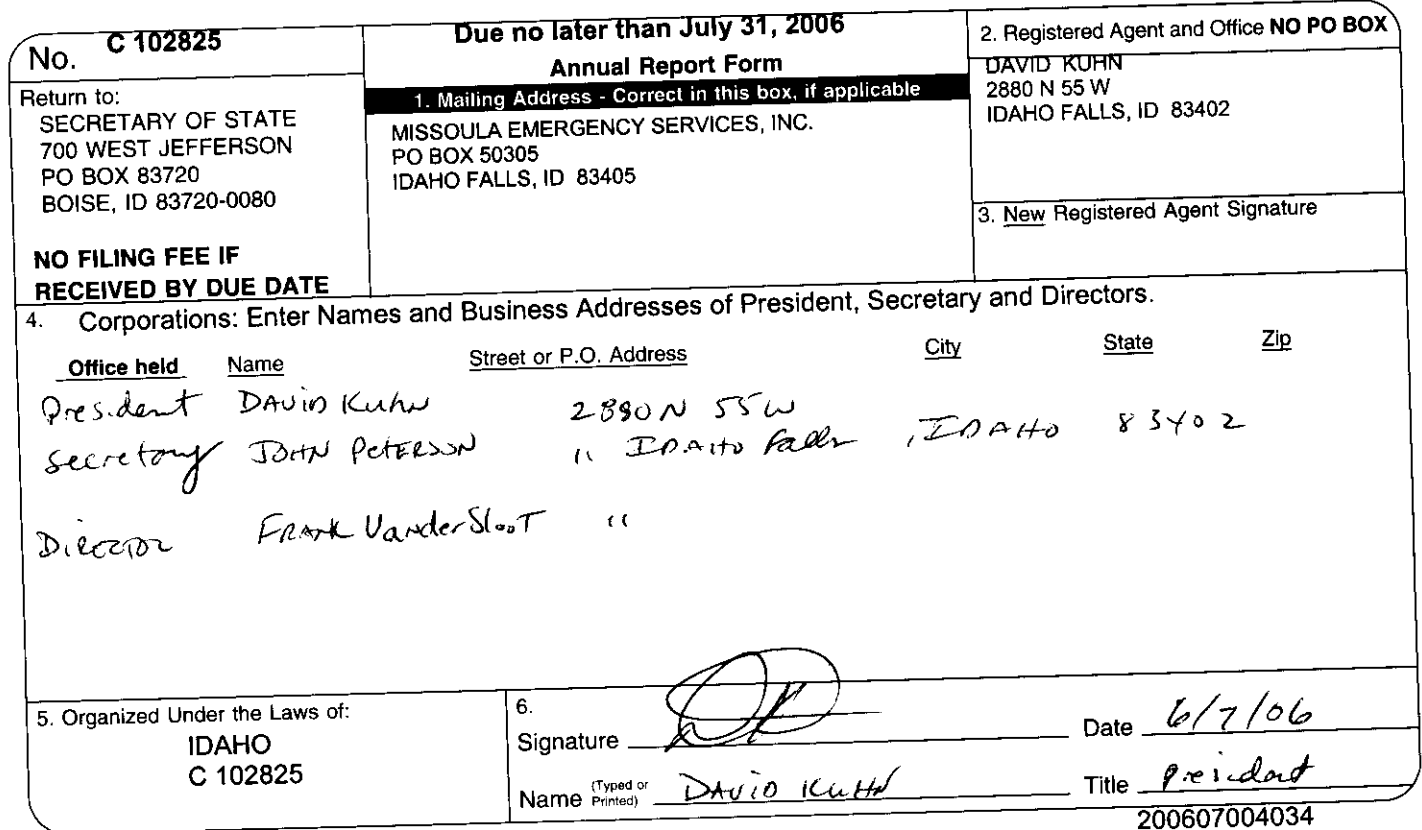 No. C 102825
Return to:
SECRETARY OF STATE
700 WEST JEFFERSON
PO BOX 83720
BOISE, ID 83720-0080
NO FILING FEE IF
RECEIVED BY DUE DATE
Due no later than July 31, 2006
Annual Report Form
1. Mailing Address - Correct in this box, if applicable
MISSOULA EMERGENCY SERVICES, INC.
PO BOX 50305
IDAHO FALLS, ID 83405
2. Registered Agent and Office NO PO BOX
DAVID KUHN
2880 N 55 W
IDAHO FALLS, ID 83402
3. New Registered Agent Signature
4. Corporations: Enter Names and Business Addresses of President, Secretary and Directors.
Office held Name Street or P.O. Address City State Zip
President DAVID KUHN 2880 N 55 W
Secretary JOHN PETERSON " IDAHO Falls , IDAHO 83402
DIRECTOR FRANK VanderSlooT "
5. Organized Under the Laws of:
IDAHO
C 102825
6.
Signature
Date 6/7/06
Name (Typed or Printed) DAVID KUHN
Title President
200607004034